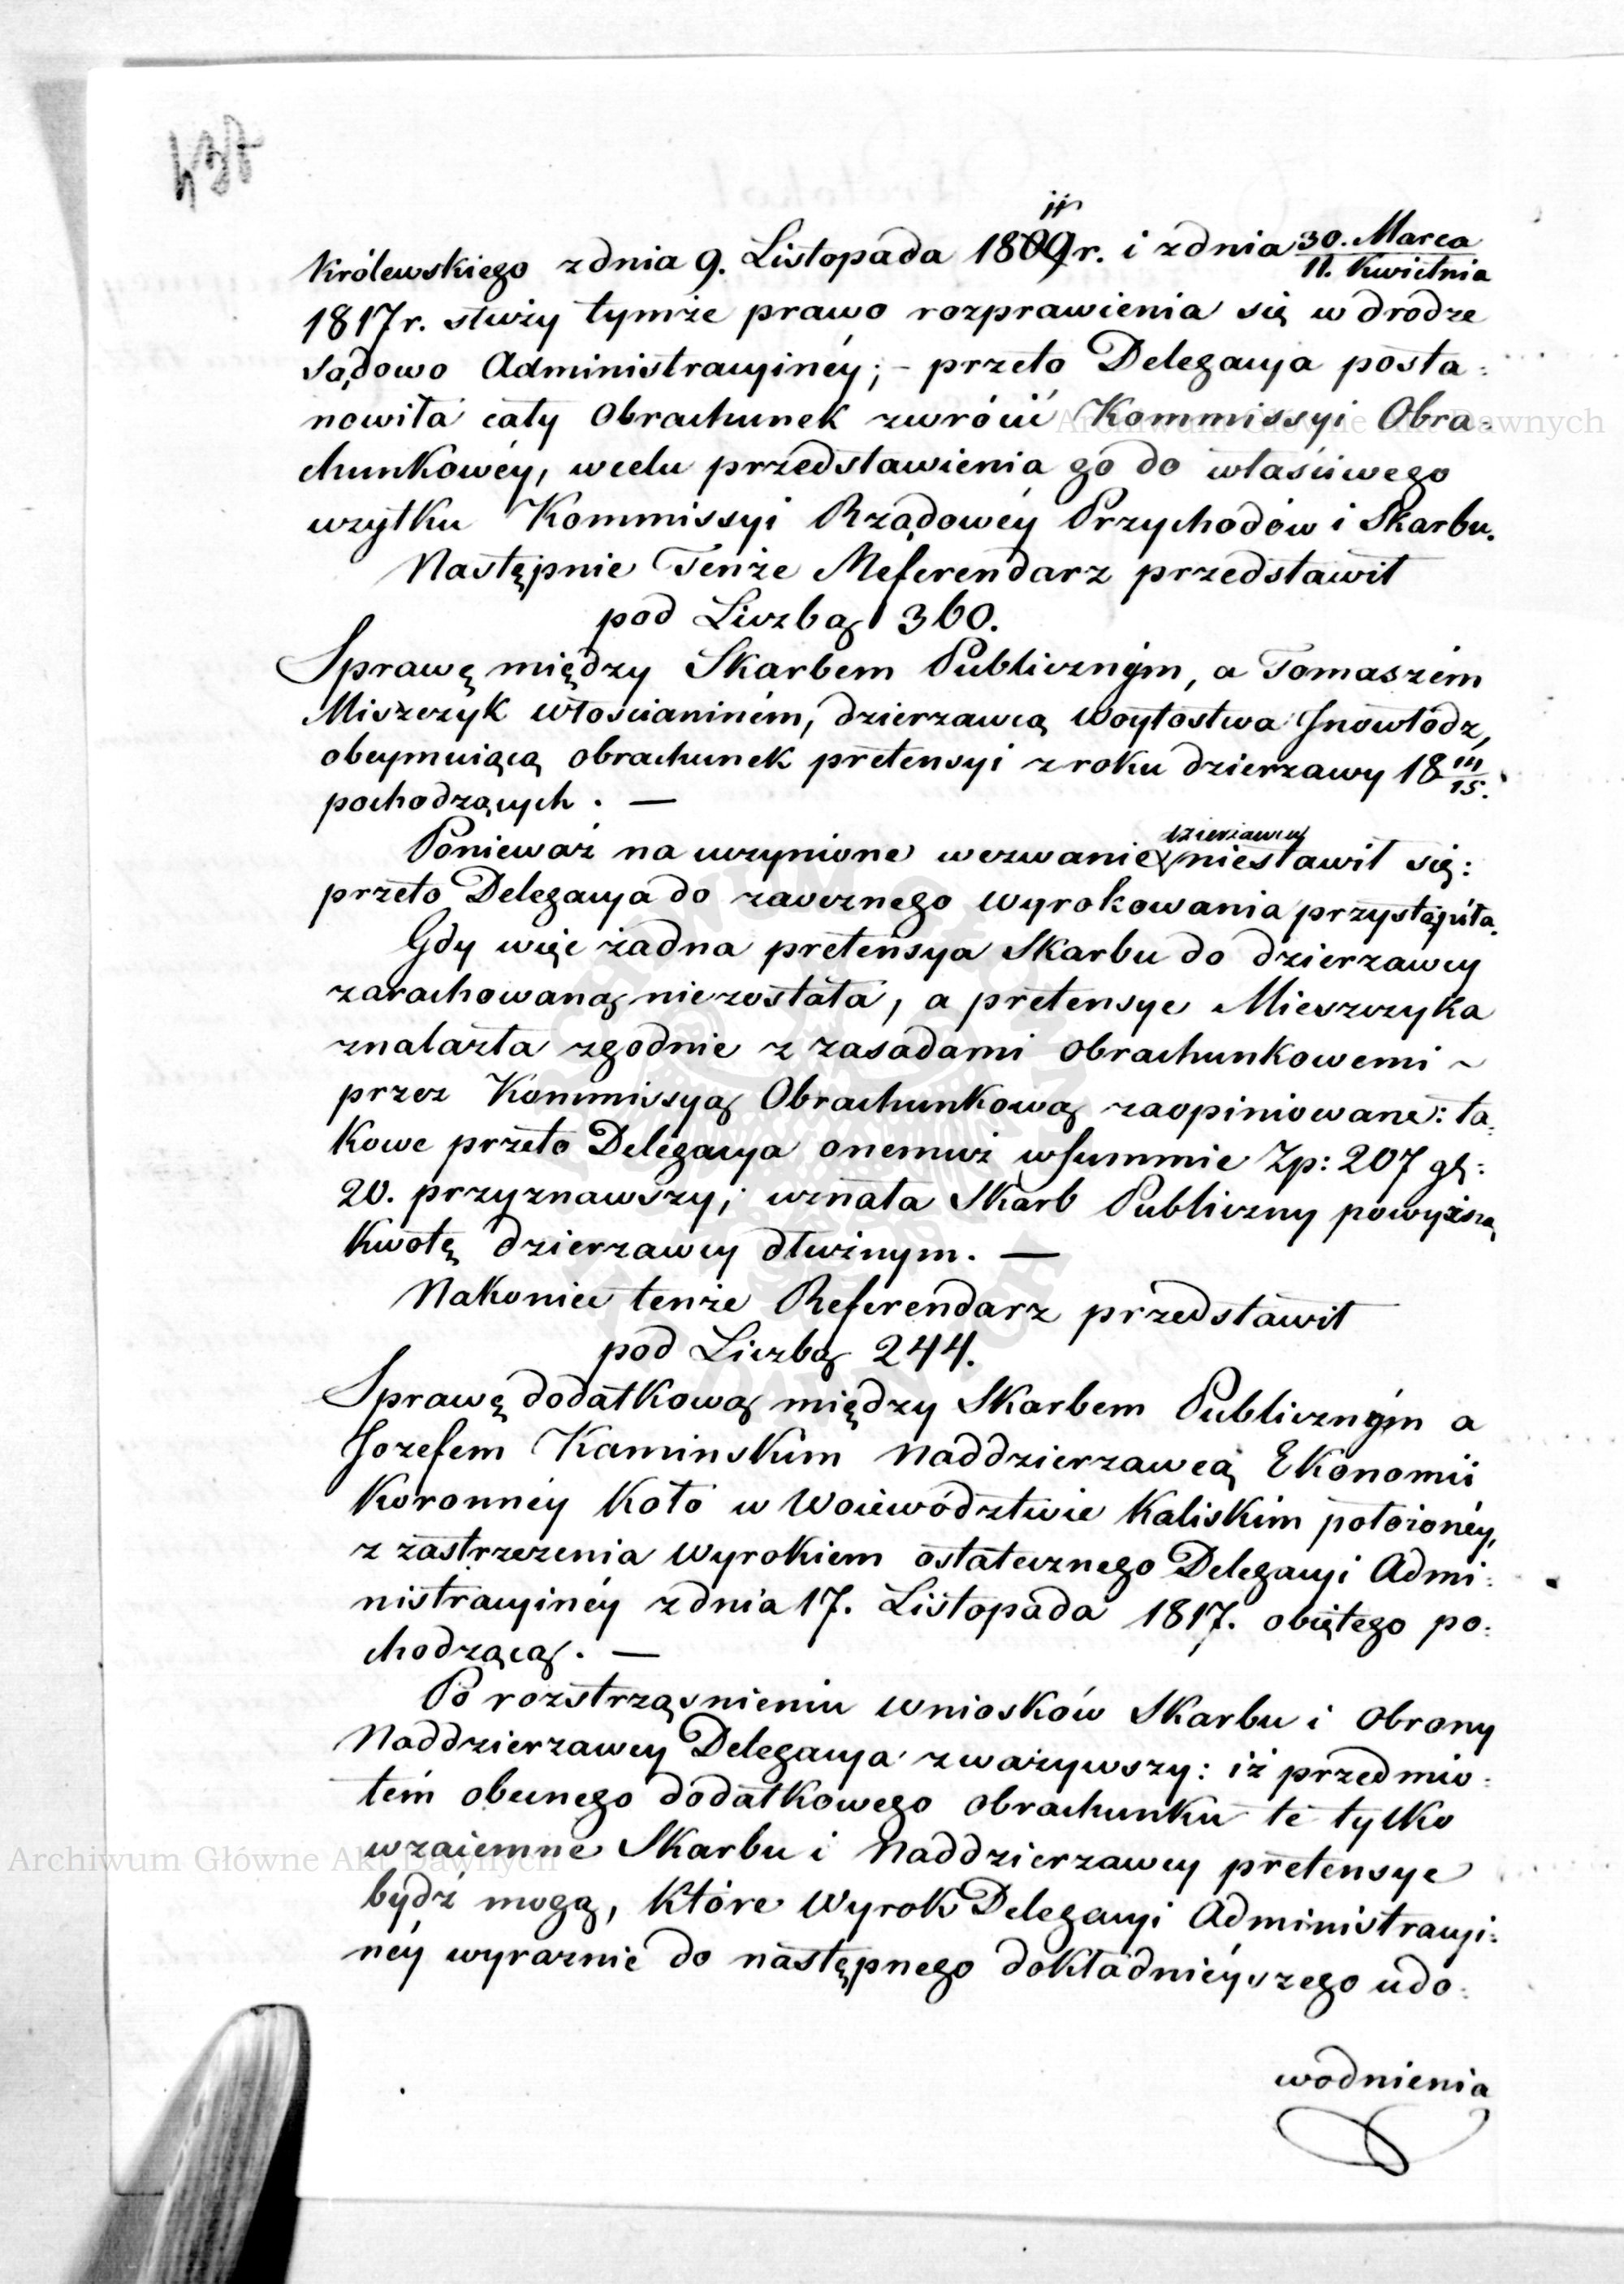 Królewskiego z dnia 9. Listopada 1809 r. i z dnia 30. Marca / 11. Kwietnia
1817 r. służy tymże prawo rozprawienia się w drodze
Sądowo Administracyinéy; – przeto Delegacya posta:
nowiła cały Obrachunek zwrócić Kommissyi Obra:
chunkowéy, w celu przedstawienia go do właściwego
użytku Kommissyi Rządowéy Przychodów i Skarbu.
Następnie Tenże Referendarz przedstawił
pod Liczbą 360.
Sprawę między Skarbem Publicznym, a Tomaszém
Miszczyk włościaniném, dzierzawcą Woytostwa Jnowłódz,
obeymuiącą obrachunek pretensyi z roku dzierzawy 18 14/15.
pochodzących. —
Ponieważ na uczynione wezwanie dzierżawcy niestawił się:
przeto Delegacya do zaocznego wyrokowania przystąpiła.
Gdy więc żadna pretensya Skarbu do dzierzawcy
zarachowaną niezostała, a pretensye Mieszczyka
znalazła zgodnie z zasadami obrachunkowemi ~
przez Kommissyą Obrachunkową zaopiniowane: ta:
kowe przeto Delegacya onemuż w summie Zp: 207 gr:
20. przyznawszy; uznała Skarb Publiczny powyższą
kwotę dzierzawcy dłużnym. —
Nakoniec tenże Referendarz przedstawił
pod Liczbą 244.
Sprawę dodatkową między Skarbem Publicznym a
Jozefem Kaminskim Naddzierzawcą Ekonomii
Koronnéy Koło w Woiewództwie Kaliskim położonéy,
z zastrzeżenia Wyrokiem ostatecznego Delegacyi Admi:
nistracyinéy z dnia 17. Listopada 1817. obiętego po:
chodzącą. —
Po rozstrząsnieniu wniosków Skarbu i Obrony
Naddzierzawcy Delegacya zważywszy: iż przedmio:
tém obecnego dodatkowego obrachunku te tylko
wzaiemne Skarbu i Naddzierzawcy pretensye
bydź mogą, które Wyrok Delegacyi Administracyi:
néy wyraznie do następnego dokładnieyszego udo:
wodnienia
Archiwum Główne Akt Dawnych
Archiwum Główne Akt Dawnych